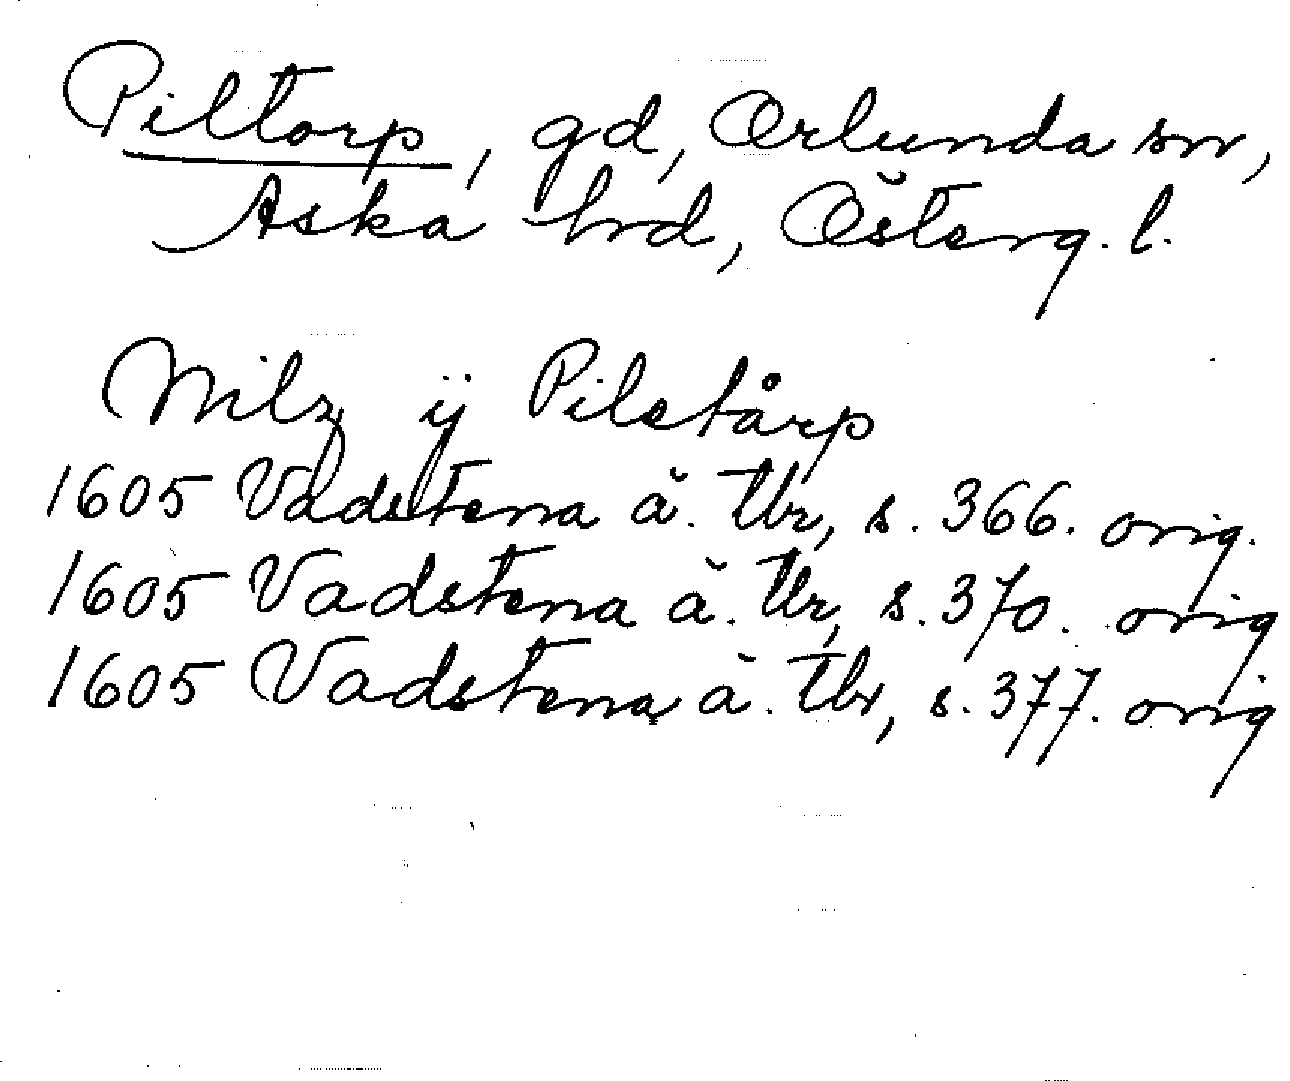 Piltorp, gd, Orlunda sn,
Aska hrd, Österg. l.
Nilz ij Piletårp
1605 Vadstena ä. tbr, s. 366. orig.
1605 Vadstena ä. tbr, s. 370. orig
1605 Vadstena ä. tbr, s. 377. orig